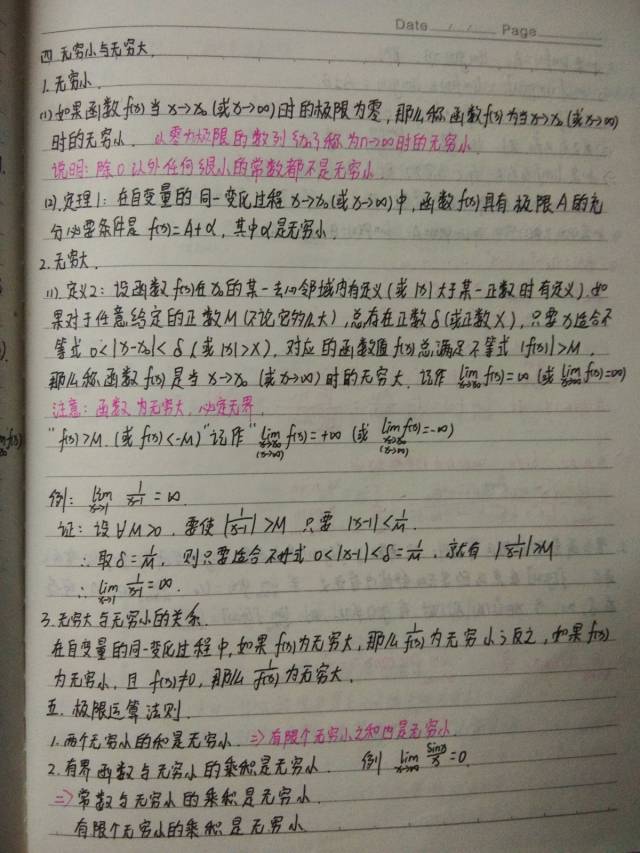 Date / / Page
四 无穷小与无穷大.
1. 无穷小.
(1) 如果函数f(x)当 x→x₀(或x→∞)时的极限为零, 那么称函数f(x)为当x→x₀(或x→∞)
时的无穷小. 以零为极限的数列{xₙ}称为n→∞时的无穷小.
说明: 除0以外任何很小的常数都不是无穷小.
(2). 定理1: 在自变量的同一变化过程 x→x₀(或x→∞)中, 函数f(x)具有极限A的充
分必要条件是 f(x)=A+α, 其中α是无穷小.
2. 无穷大.
(1) 定义2: 设函数f(x)在x₀的某一去心邻域内有定义(或|x|大于某一正数时有定义). 如
果对于任意给定的正数M(不论它多么大), 总存在正数δ(或正数X), 只要x适合不
等式 0<|x-x₀|<δ (或|x|>X), 对应的函数值f(x)总满足不等式 |f(x)|>M,
那么称函数f(x)是当x→x₀ (或x→∞)时的无穷大. 记作 lim x→x₀ f(x)=∞ (或 lim x→∞ f(x)=∞)
注意: 函数为无穷大, 必定无界.
"f(x)>M (或f(x)<-M)"记作" lim x→x₀ (x→∞) f(x)=+∞ (或 lim x→x₀ (x→∞) f(x)=-∞)
例: lim x→1 1/(x-1) =∞.
证: 设∀M>0, 要使|1/(x-1)|>M 只要 |x-1|<1/M.
∴ 取δ=1/M, 则只要适合不等式 0<|x-1|<δ=1/M, 就有 |1/(x-1)|>M
∴ lim x→1 1/(x-1)=∞.
3. 无穷大与无穷小的关系.
在自变量的同一变化过程中, 如果f(x)为无穷大, 那么1/f(x)为无穷小; 反之, 如果f(x)
为无穷小, 且 f(x)≠0, 那么 1/f(x) 为无穷大.
五. 极限运算法则.
1. 两个无穷小的和是无穷小. ⇒ 有限个无穷小之和也是无穷小.
2. 有界函数与无穷小的乘积是无穷小. 例 lim x→∞ sinx/x=0.
⇒ 常数与无穷小的乘积是无穷小.
有限个无穷小的乘积是无穷小